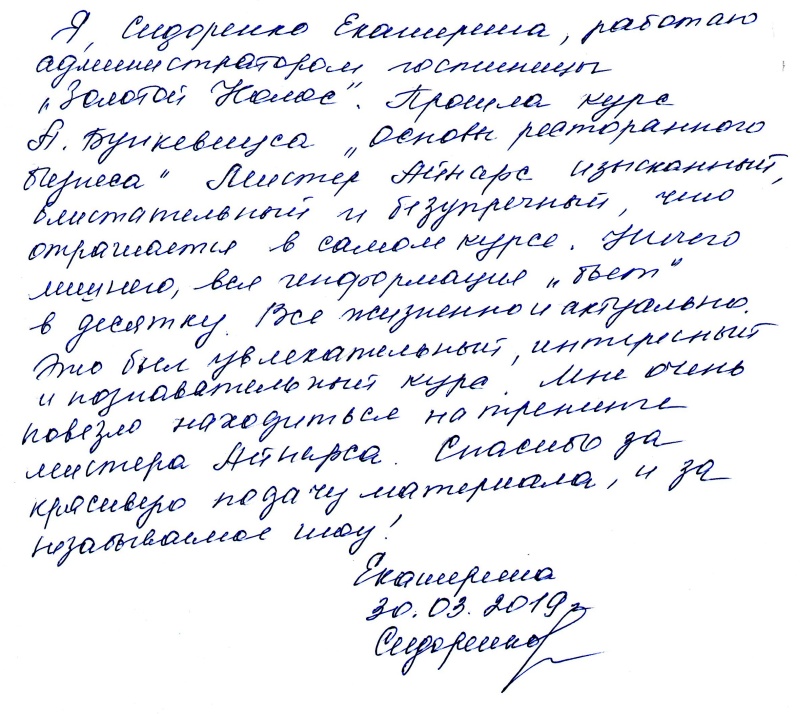 Я, Сидоренко Екатерина, работаю
администратором гостиницы
„Золотой Колос". Прошла курс
А. Бункевицса „Основы ресторанного
бизнеса" Мистер Айнарс изысканный,
блистательный и безупречный, что
отражается в самом курсе. Ничего
лишнего, вся информация „бьет"
в десятку. Все жизненно и актуально.
Это был увлекательный, интересный
и познавательный курс. Мне очень
повезло находиться на тренинге
мистера Айнарса. Спасибо за
красивую подачу материала, и за
незабываемое шоу!
Екатерина
30.03.2019г
Сидоренко